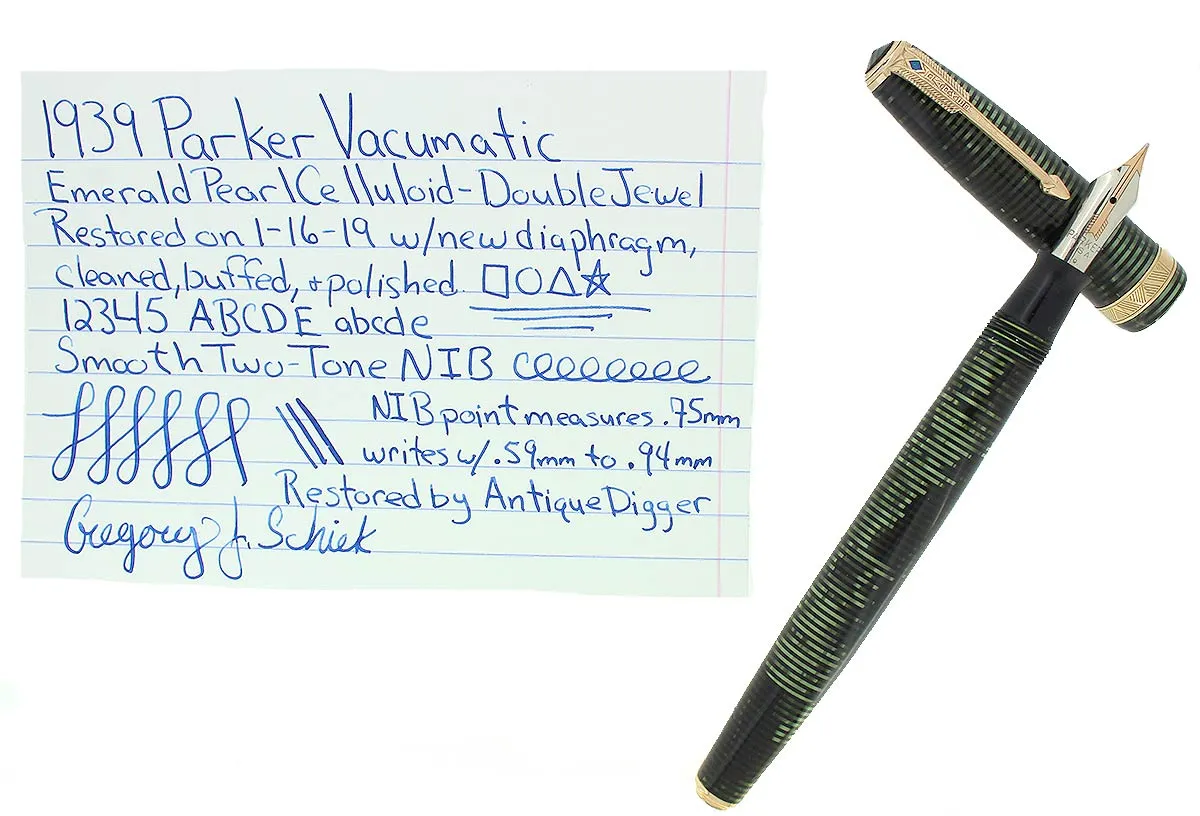 1939 Parker Vacumatic
Emerald Pearl Celluloid - Double Jewel
Restored on 1-16-19 w/new diaphragm,
cleaned, buffed, + polished
12345 ABCDE abcde
Smooth Two-Tone NIB eeeeeeee
NIB point measures .75mm
writes w/ .59mm to .94mm
Restored by Antique Digger
Gregory J. Schiek
PARKER